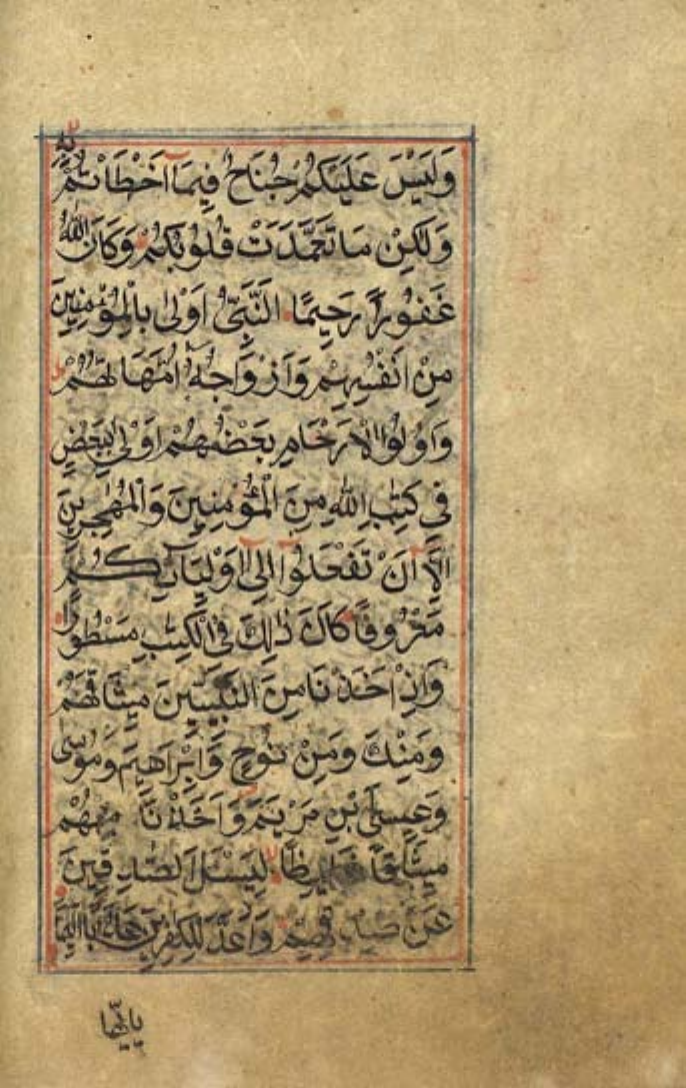 وَلَيْسَ عَلَيْكُمْ جُنَاحٌ فِيمَا أَخْطَأْتُمْ بِهِ
وَلَكِنْ مَا تَعَمَّدَتْ قُلُوبُكُمْ وَكَانَ اللَّهُ
غَفُورًا رَحِيمًا النَّبِيُّ أَوْلَى بِالْمُؤْمِنِينَ
مِنْ أَنْفُسِهِمْ وَأَزْوَاجُهُ أُمَّهَاتُهُمْ
وَأُولُوا الْأَرْحَامِ بَعْضُهُمْ أَوْلَى بِبَعْضٍ
فِي كِتَٰبِ اللَّهِ مِنَ الْمُؤْمِنِينَ وَالْمُهَٰجِرِينَ
إِلَّا أَنْ تَفْعَلُوا إِلَى أَوْلِيَآئِكُمْ
مَعْرُوفًا كَانَ ذَٰلِكَ فِي الْكِتَٰبِ مَسْطُورًا
وَإِذْ أَخَذْنَا مِنَ النَّبِيِّينَ مِيثَاقَهُمْ
وَمِنْكَ وَمِنْ نُوحٍ وَإِبْرَاهِيمَ وَمُوسَى
وَعِيسَى بْنِ مَرْيَمَ وَأَخَذْنَا مِنْهُمْ
مِيثَاقًا غَلِيظًا لِيَسْئَلَ الصَّٰدِقِينَ
عَنْ صِدْقِهِمْ وَأَعَدَّ لِلْكَٰفِرِينَ عَذَابًا أَلِيمًا
يَا أَيُّهَا